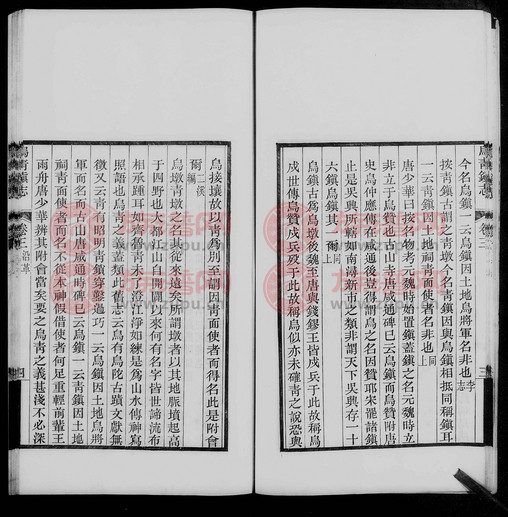 烏青鎮志 卷二 三
今名烏鎮一云青鎮因土地烏將軍名非也李志
按青鎮古謂之青墩今名青鎮因與烏鎮相抵同稱鎮耳
一云青鎮因土地祠青面使者名非也同上
唐少華曰按名物考元魏時始置鎮鎮之名元魏時立
非立于烏贊也古山寺唐咸通碑已云烏鎮而烏贊附唐
史烏仲應傳在咸通後豈得謂烏之名因贊耶宋罷諸鎮
止是吳興所轄如南潯新市之類非謂天下吳興存一十
六鎮烏鎮其一爾同上
烏鎮古爲烏墩後魏至唐與錢鏐王皆戍兵于此故稱烏
戍世傳烏贊戍兵及于此故稱烏似亦未確青之說恐與
烏接壤故以青爲別至謂因青面使者而得名此是附會
爾二溪編
烏墩青墩之名其從來遠矣所謂墩者以其地脈墳起高
于四野也大都江山自開闢以來何有名字皆世諦流布
相承踵耳如齊得青未了澄江淨如練是爲山水傳神寫
照語也烏青之義蓋類此舊志云烏有烏陀古蹟文獻無
徵又云青有昭明青鎮穿鑿過巧一云烏鎮因土地烏將
軍而名然古山唐咸通時碑已云烏鎮一云青鎮因土地
祠青面使者而名不從木神假借使者何足重輕前輩王
雨舟唐少華辨其附會當矣要之烏青之義甚淺不必深
烏青鎮志 卷二 沿革 四